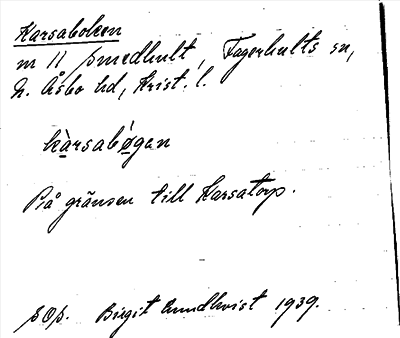 Karsaboken
m 11 Smedhult, Fagerhults sn,
N. Åsbo hd, Krist. l.
kàrsabógen
På gränsen till Karsatorp.
SOp. Birgit Lundkvist 1939.